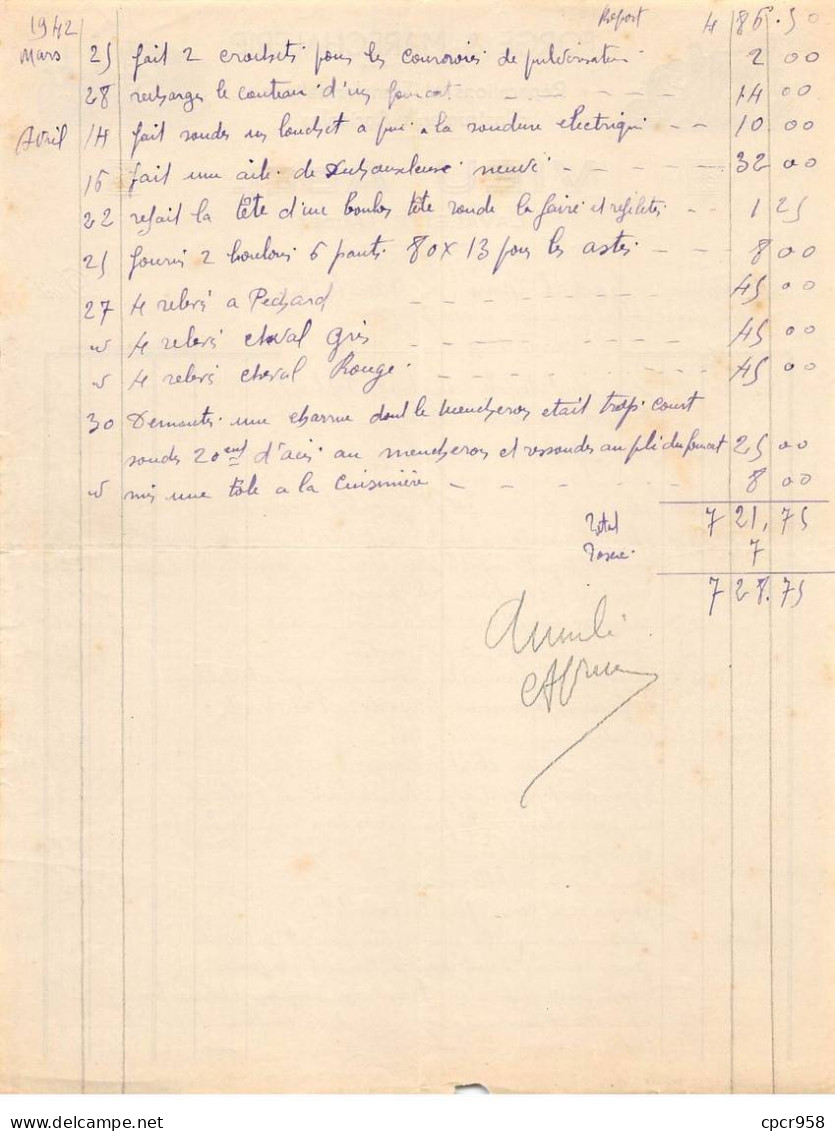 1942 Report 486.50
Mars 25 fait 2 crochets pour les courroies de pulverisateur 2 00
28 recharger le couteau d'un 14 00
Avril 14 fait souder un a la soudure electrique 10 00
16 fait une aile de neuve 32 00
22 refait la tête d'un boulon tête ronde le faire et refileter 1 25
25 fourni 2 boulons 6 pants 80x13 pour les 8 00
27 4 relevé a Pechard 45 00
" 4 relevé cheval gris 45 00
" 4 relevé cheval Rouge 45 00
30 Demonter une charrue dont le mencheron etait trop court
souder 20 cm d'acier au mencheron et ressouder au pli du 25 00
" mis une tôle a la cuisinière 8 00
Total 721,75
7
728.75
cpcr958